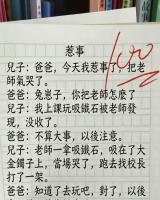 惹事
100
兒子：爸爸，今天我惹事了，把老
師氣哭了。
爸爸：兔崽子，你把老師怎麼了
兒子：我上課玩吸鐵石被老師發
現，没收了。
爸爸：不算大事，以後注意。
兒子：老師一拿吸鐵石，吸在了大
金鐲子上，當場哭了，跑去找校長
打了一架。
爸爸：知道了去玩吧，對了，以後